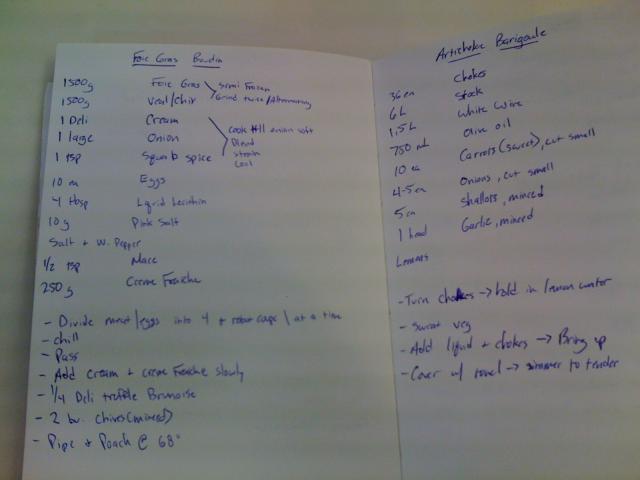 Foie Gras Boudin
1500g Foie Gras
1500g Veal/chix
Semi Frozen
Grind twice/Alternating
1 Deli Cream
1 large Onion
1 tsp Squab spice
cook till onion soft
Blend
strain
Cool
10 ea Eggs
4 tbsp Liquid Lecithin
10g Pink Salt
Salt + W. Pepper
1/2 tsp Mace
250g Creme Fraiche
- Divide meat/eggs into 4 + robot coupe 1 at a time
- chill
- Pass
- Add cream + creme Fraiche slowly
- 1/4 Deli truffle Brunoise
- 2 bu. chives (minced)
- Pipe + Poach @ 68°
Artichoke Barigoule
36 ea chokes
6L stock
1.5L white wine
750 ml olive oil
10 ea Carrots (sweet), cut small
4-5 ea Onions, cut small
5 ea shallots, minced
1 head Garlic, minced
Lemons
- Turn chokes → hold in lemon water
- Sweat veg
- Add liquid + chokes → Bring up
- Cover w/ towel → simmer to tender